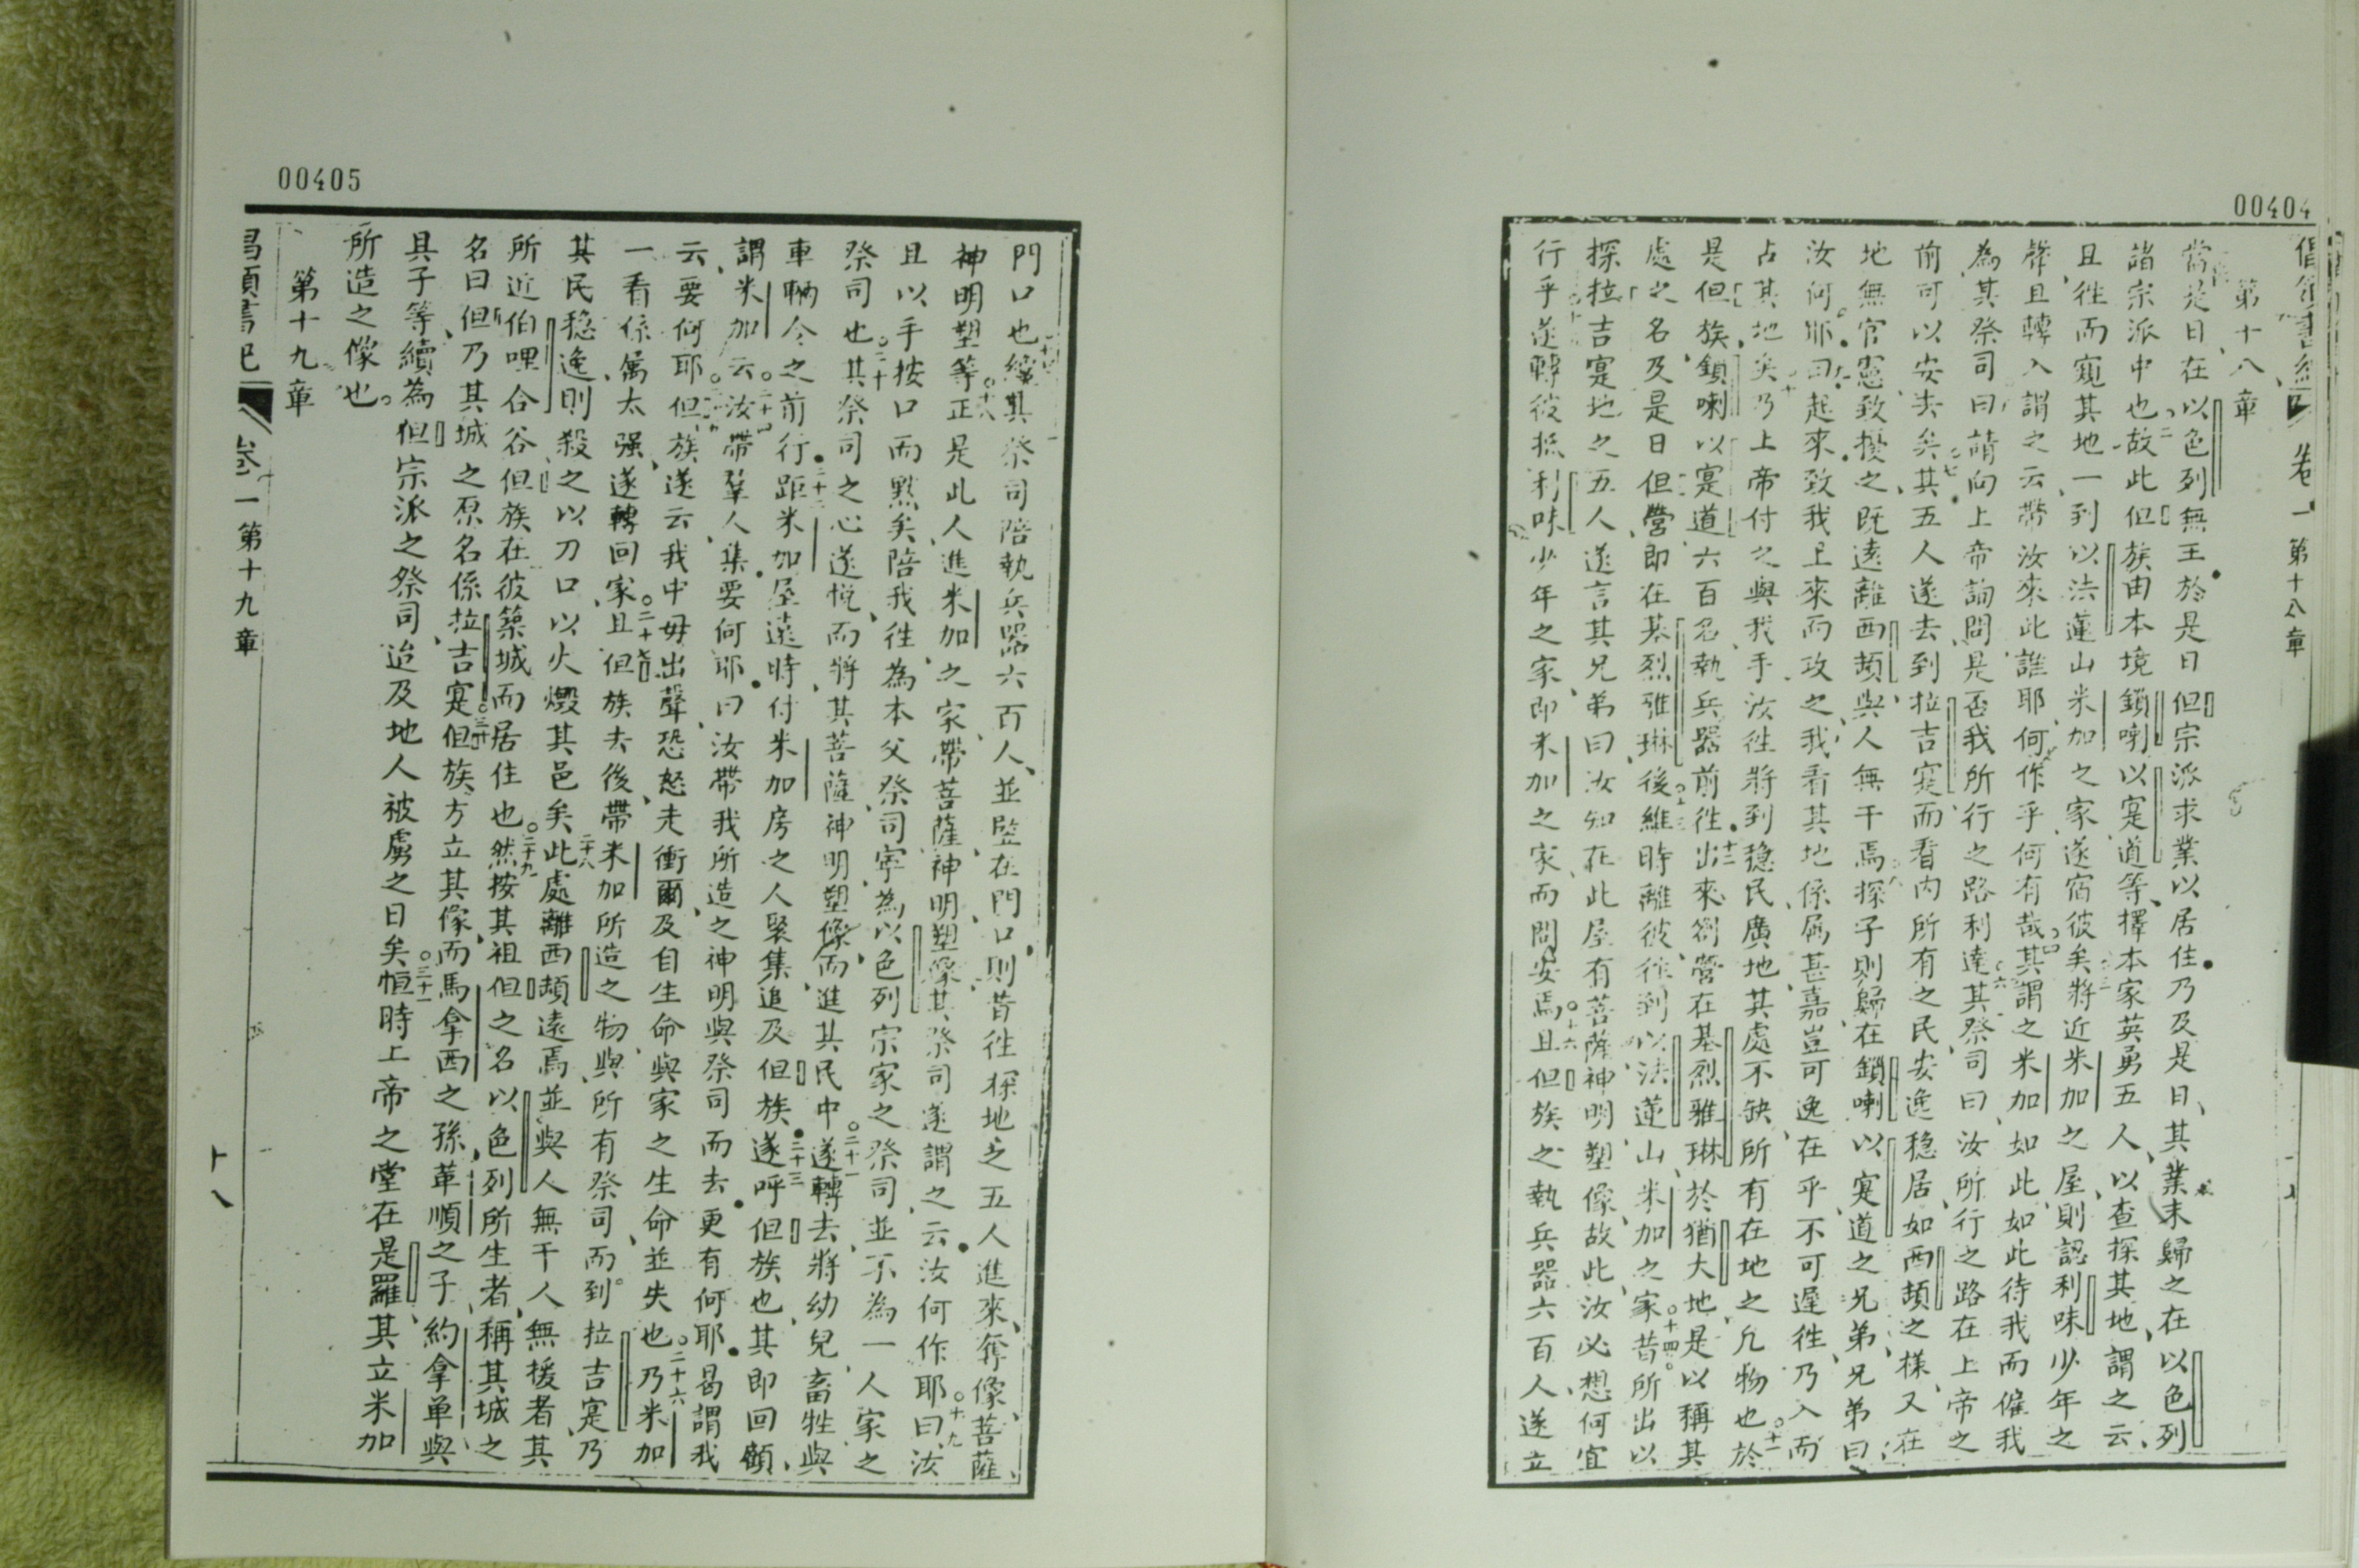 00404
第十八章
當是日在以色列無王於是日但宗派求業以居住乃及是日其業未歸之在以色列
諸宗派中也二故此但族由本境鎖喇以寔道等擇本家英勇五人以查探其地謂之云
且徃而窺其地一到以法蓮山米加之家遂宿彼矣將近米加之屋則認利味少年之
聲且轉入謂之云帶汝來此誰耶何作乎何有哉其謂之米加如此如此待我而僱我
為其祭司曰請向上帝詢問是否我所行之路利達其祭司曰汝所行之路在上帝之
前可以安去矣其五人遂去到拉吉寔而看內所有之民安逸穏居如西頡之樣又在
地無官憲致擾之既遠離西頡與人無干焉探子則歸在鎖喇以寔道之兄弟兄弟曰
汝何耶曰起來致我上來而攻之我看其地係屬甚嘉豈可逸在乎不可遲徃乃入而
占其地矣乃上帝付之與我手汝徃將到穏民廣地其處不缺所有在地之凢物也於
是但族鎖喇以寔道六百名執兵器前徃出來劄營在基烈雅琳於猶大地是以稱其
處之名及是日但營即在基烈雅琳後維時離彼徃到以法蓮山米加之家昔所出以
探拉吉寔地之五人遂言其兄弟曰汝知在此屋有菩薩神明塑像故此汝必想何宜
行乎遂轉彼抵利味少年之家即米加之家而問安焉且但族之執兵器六百人遂立
卷一 第十八章
00405
門口也續其祭司陪執兵器六百人並竪在門口則昔徃探地之五人進來奪像菩薩
神明塑等正是此人進米加之家帶菩薩神明塑像其祭司遂謂之云汝何作耶曰汝
且以手按口而黙矣陪我徃為本父祭司寧為以色列宗家之祭司並不為一人家之
祭司也其祭司之心遂悅而將其菩薩神明塑像而進其民中遂轉去將幼兒畜牲與
車輛令之前行距米加屋遠時付米加房之人聚集追及但族遂呼但族也其即回顧
謂米加云汝帶羣人集要何耶曰汝帶我所造之神明與祭司而去更有何耶曷謂我
云要何耶但族遂云我中毋出聲恐怒走衝爾及自生命與家之生命並失也乃米加
一看係属太强遂轉回家且但族去後帶米加所造之物與所有祭司而到拉吉寔乃
其民穏逸則殺之以刀口以火燬其邑矣此處離西頡遠焉並與人無干人無援者其
所近伯哩合谷但族在彼築城而居住也然按其祖但之名以色列所生者稱其城之
名曰但乃其城之原名係拉吉寔但族方立其像而馬拿西之孫革順之子約拿单與
其子等續為但宗派之祭司迨及地人被虜之日矣恒時上帝之堂在是羅其立米加
所造之像也
第十九章
卷一 第十九章
十八